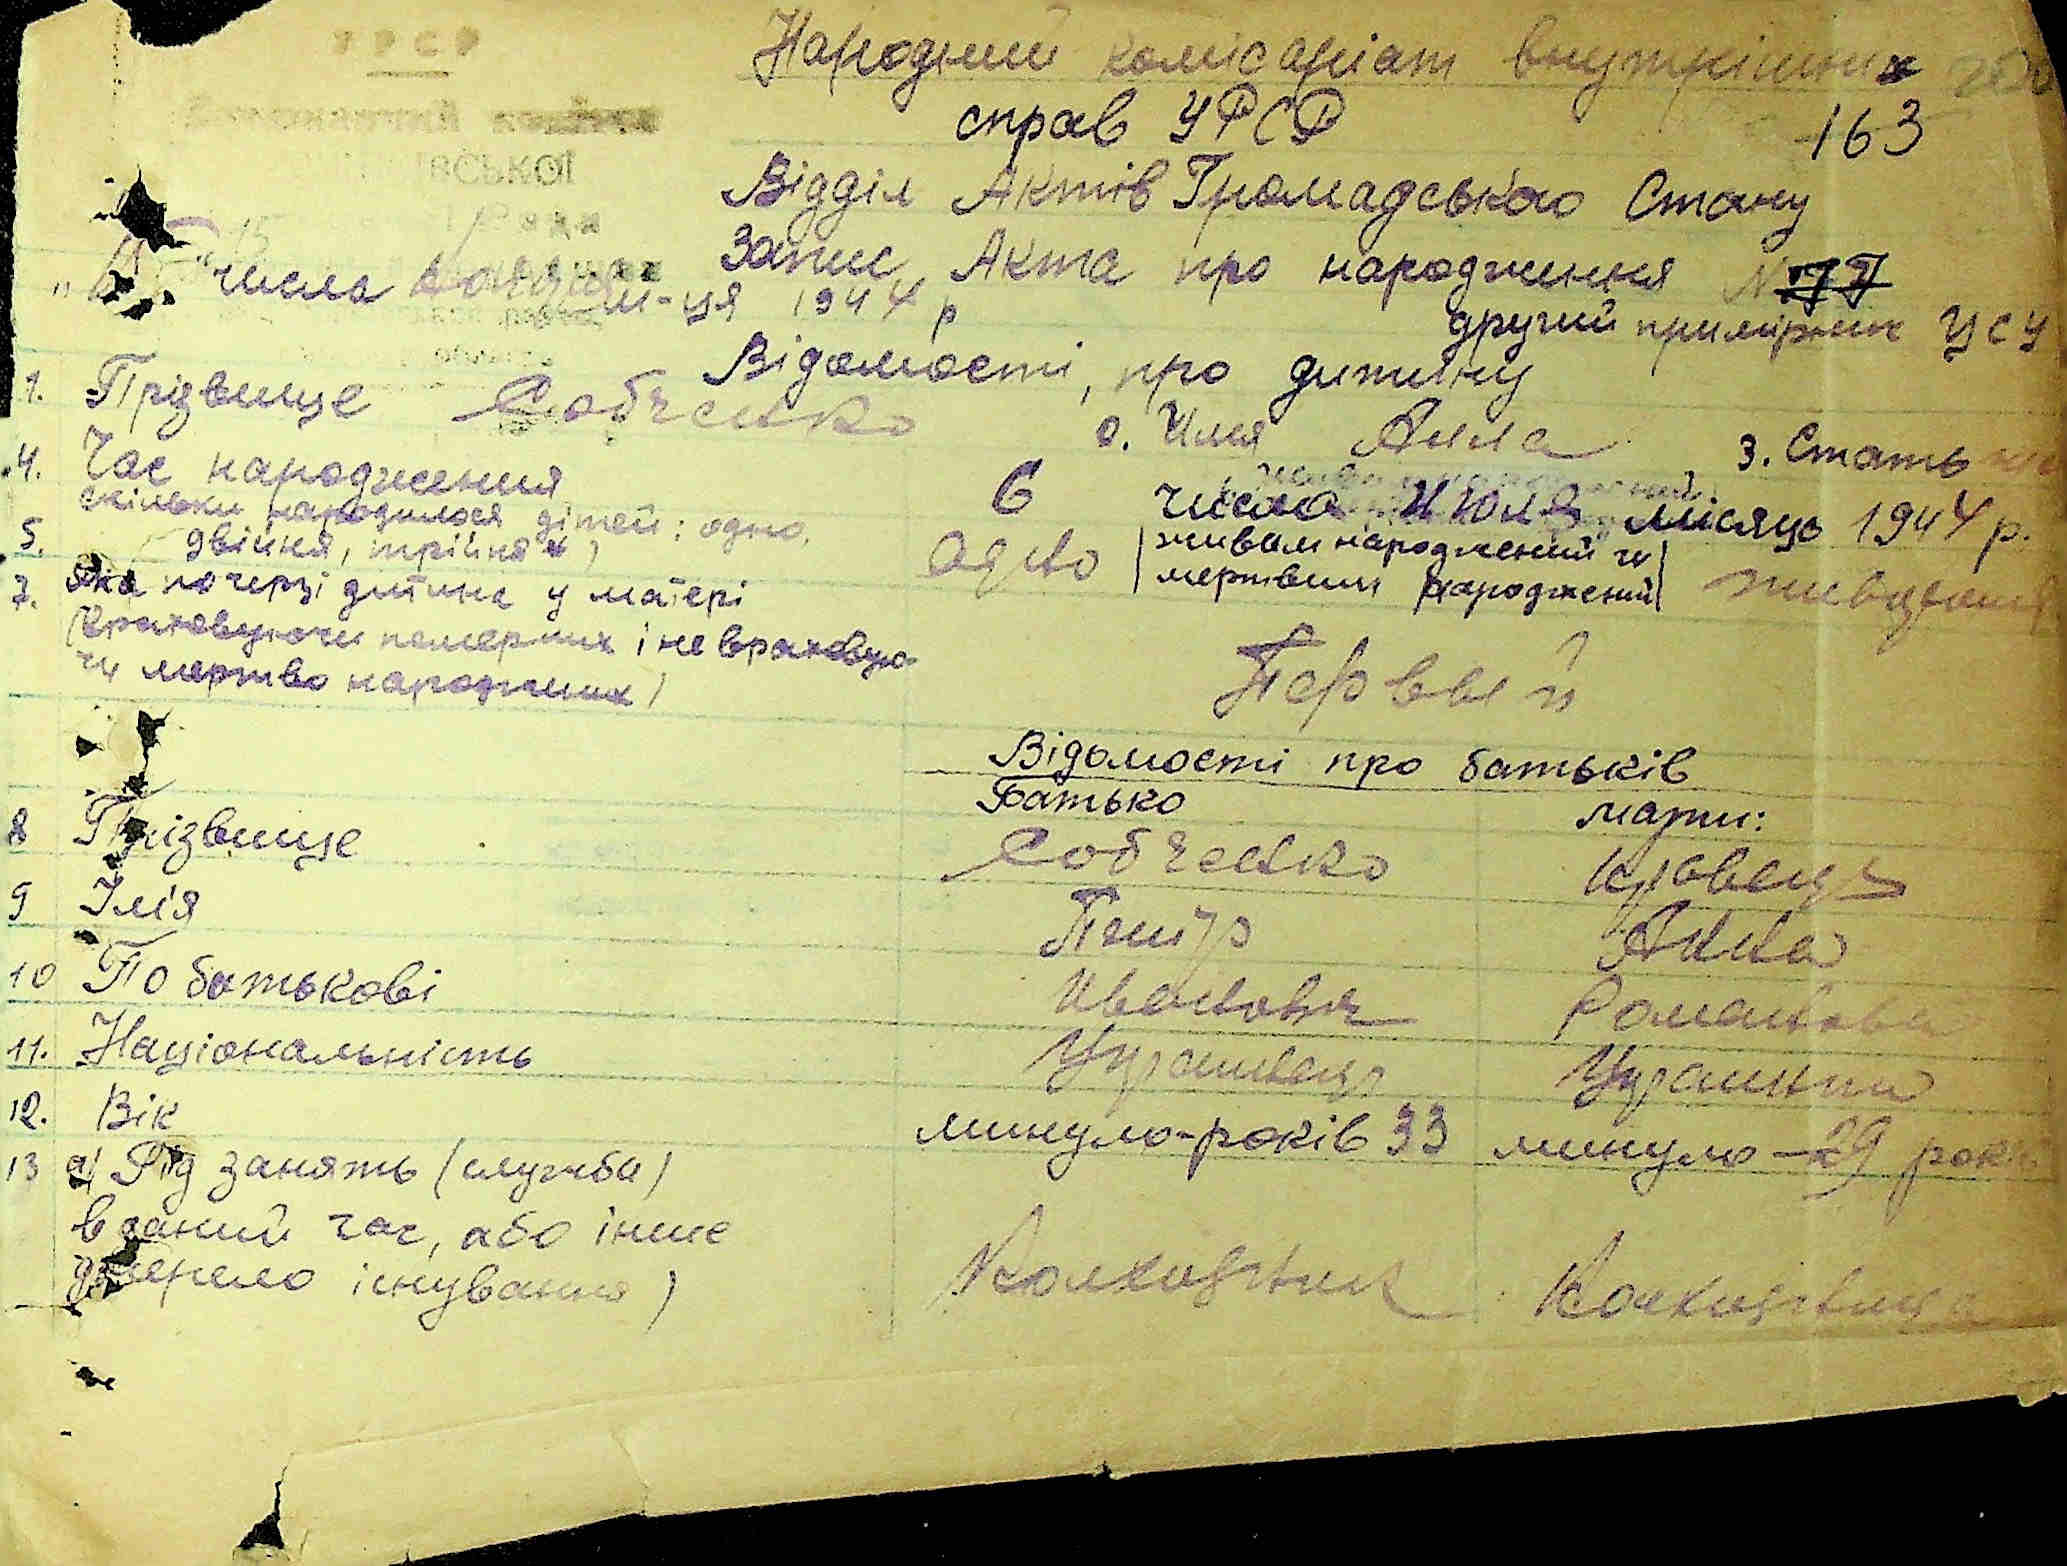 УРСР
Виконавчий комітет
Народний комісаріат внутрішних
справ УРСР
163
ВСЬКОЇ
Відділ Актів Громадського Стану
Ради
Запис Акта про народження N
" числа м-ця 1944 р
другий примірник ЦСУ
Відомості про дитину
1. Прізвище Собченко
Имя Анна 3. Стать
4. Час народження 6 числа Июля місяць 1944 р.
5. скільки народилося дітей: одно,
двійня, трійня) Одно живым народжений чи
мертвим народжений
7. Яка по черзі дитина у матері
(враховуючи померших і не враховую
чи мертво народжених) Первый
Відомості про батьків
Батько мати:
8 Прізвище Собченко Кравець
9 Імія Петр Анна
10 По батькові Иванович Романовна
11. Національність Украинец Украинка
12. Вік минуло-років 33 минуло-29 років
13 а) Рід занять (служба)
в даний час, або інше
джерело існування) Колхозник Колхозница